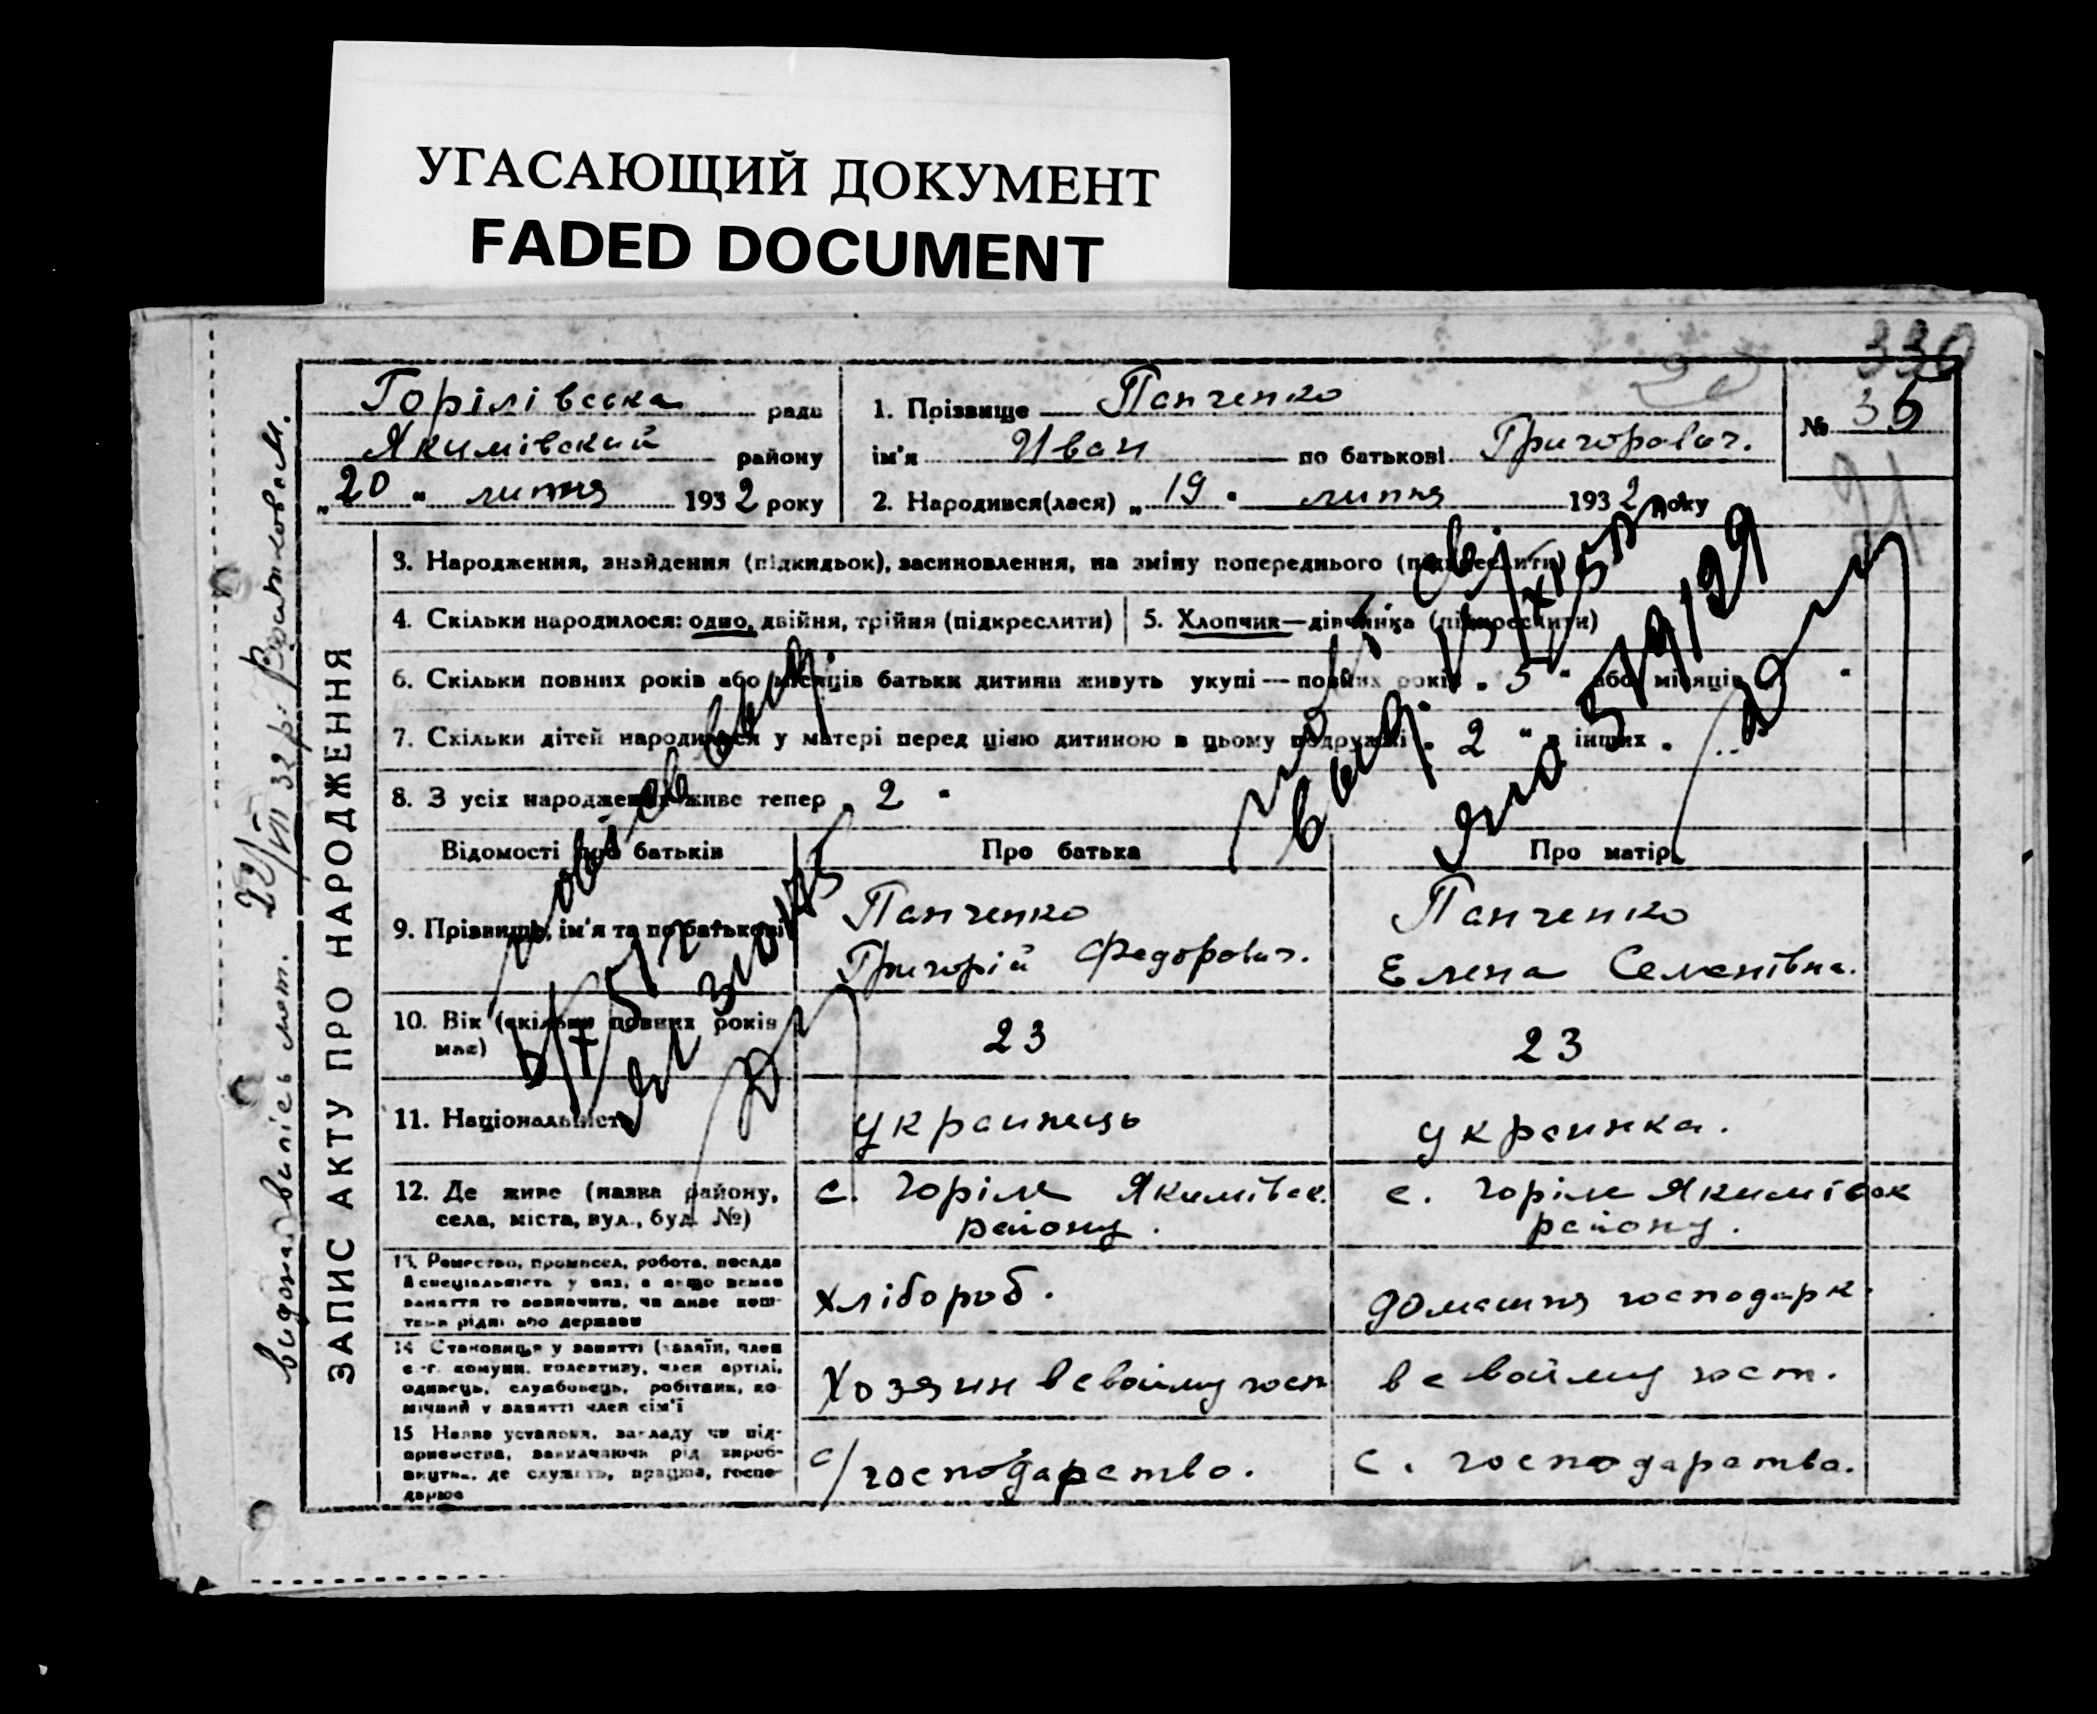 УГАСАЮЩИЙ ДОКУМЕНТ
FADED DOCUMENT
330
Горілівська ради
Якимівский району
„20“ липня 1932 року
1. Прізвище Панченко
ім'я Иван по батькові Григорович.
2. Народився(лася) „19“ липня 1932 року
№ 35
ЗАПИС АКТУ ПРО НАРОДЖЕННЯ
3. Народження, знайдення (підкидьок), засиновлення, на зміну попереднього (підкреслити)
4. Скільки народилося: одно, двійня, трійня (підкреслити)
5. Хлопчик—дівчинка (підкреслити)
6. Скільки повних років або місяців батьки дитини живуть укупі — повних років „5“ або місяців
7. Скільки дітей народилося у матері перед цією дитиною в цьому подружжі „2“ в інших
8. З усіх народжених живе тепер „2“
Відомості про батьків
Про батька
Про матір
9. Прізвище, ім'я та по батькові
Панченко
Григорій Федорович.
Панченко
Елена Семенівна.
10. Вік (скільки повних років
має)
23
23
11. Національність
украинець
украинка.
12. Де живе (назва району,
села, міста, вул., буд. №)
с. Горіле Якимівск.
району.
с. Горіле Якимівск
району.
13. Ремество, промисел, робота, посада
й спеціальність у них, а якщо немає
заняття то зазначити, чи живе кош-
тами рідні або держави
хлібороб.
домашня господарк.
14. Становище у занятті (хазяїн, член
с.-г. комуни, колективу, член артілі,
одинець, службовець, робітник, по-
мічний у занятті член сім'ї
Хозяин в своїму госп
в своїму госп.
15. Назва установи, закладу чи під-
приємства, зазначаючи рід вироб-
ництва, де служить, працює, госпо-
дарює
с/господарство.
с. господарства.